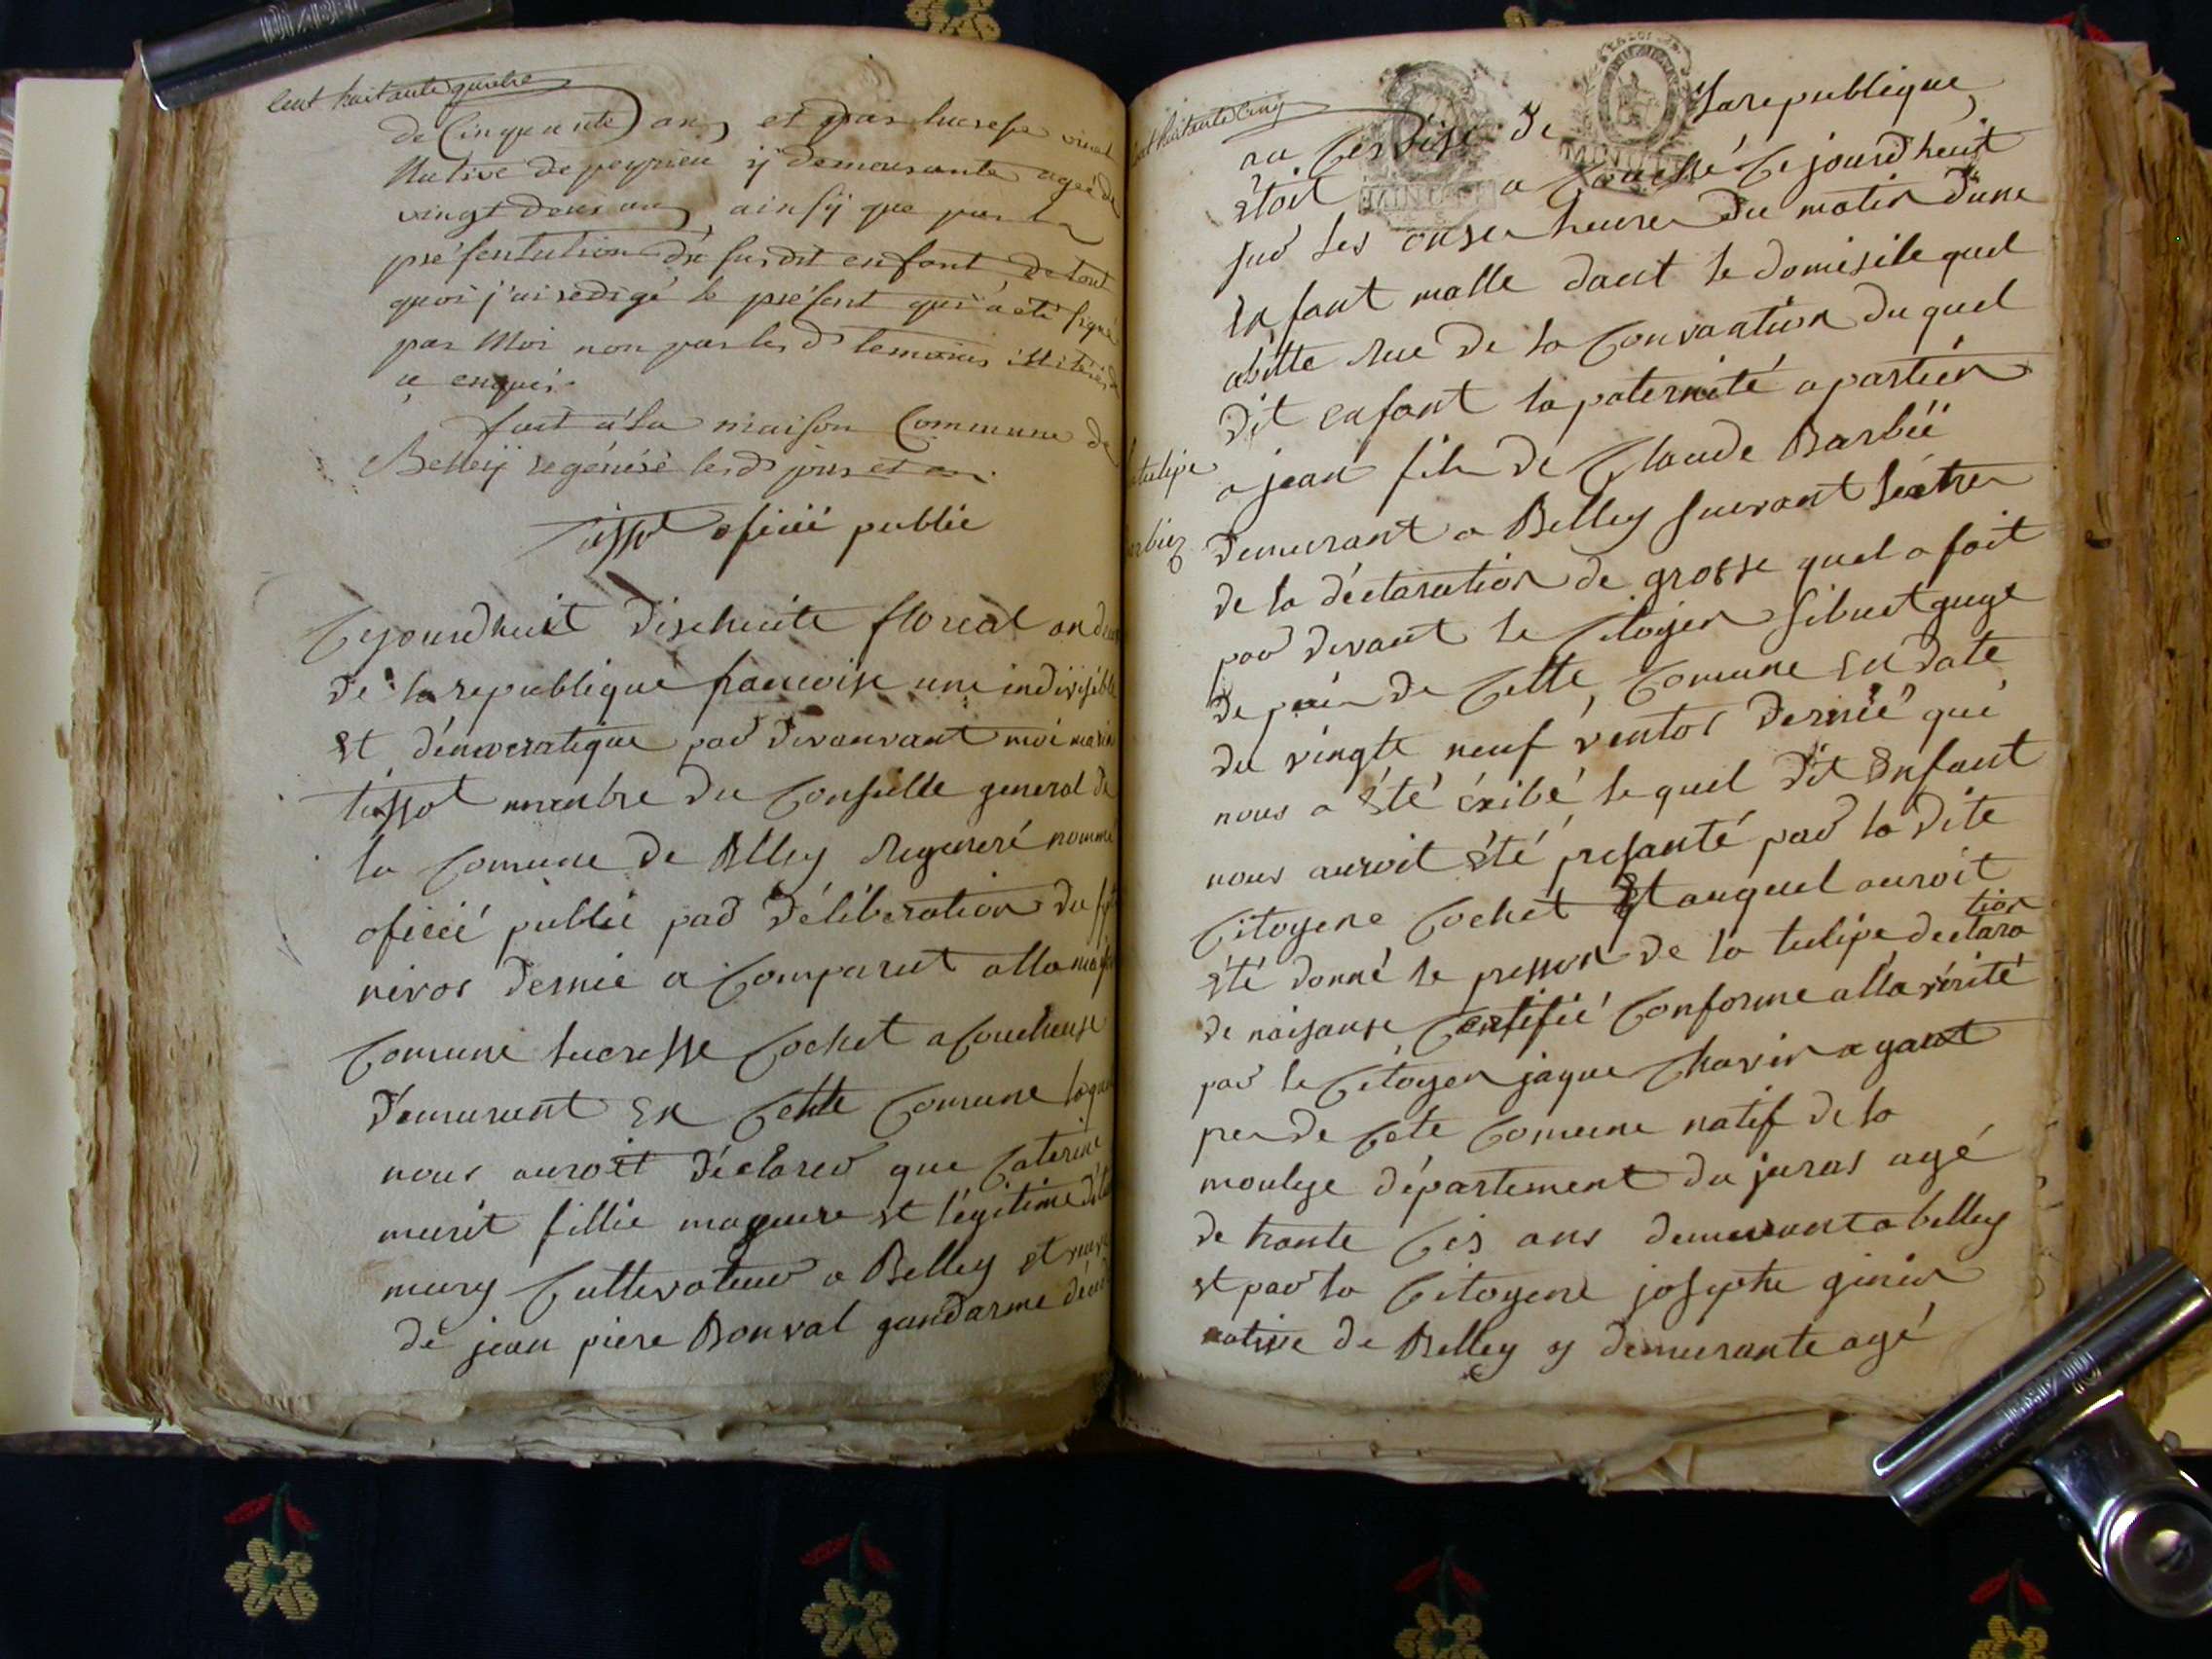 Cent huitante quatre
de Cinquante ans et par lucresse
Native de peyrieu ÿ demeurante agée de
vingt deux ans ainsÿ que par la
présentation du susdit enfant de tout
quoi j'ai redigé le présent qui a été signé
par Moi non par les d temoins illiterés
a enquis.
fait a la maison Commune de
Belleÿ régénéré lesd jour et an.
tissot oficié public
Cejourdhuit dixhuite floreal an deux
de la republique francoise une indivisible
et démocratique par devanvant moi
tissot menbre du Conseille general de
la Comune de Belley Regeneré nommé
oficié public par déliberation du
nivos dernié a Comparut alla
Comune lucresse Cochet acoucheuse
demurant en Cette Comune
nous auroit déclarer que Caterine
murit fillie mageure et légitime
mury Cultivateur a Belley et
de jean piere Bonval gandarme
Cent huitante Cinq
de la republique
étoit a Couché Cejourdhuit
sur les onse heures du matin dune
enfant malle dant le domisile quel
abitte Rue de la Convantion du quel
dit enfant la paternité apartien
tulipe
a jean fils de Claude Barbié
Barbiez
demurant a Belley suivant lextrer
de la déclaration de grosse quel a fait
par devant le Citoyen sibuet guge
de paix de Cette Comune en date
du vingte neuf ventos dernié qui
nous a été éxibé le quel dit enfant
nous auroit été presanté par la dite
Citoyene Cochet et auquel auroit
été donné le presson de la tulipe declara
tion
de naisanse Certifié Conforme alla vérité
par le Citoyen jaque Chavin agant
per de Cete Comune natif de la
moulye département du juras agé
de trante Cis ans demeurant a belley
et par la Citoyene josephte ginin
native de Belley y demurante agé